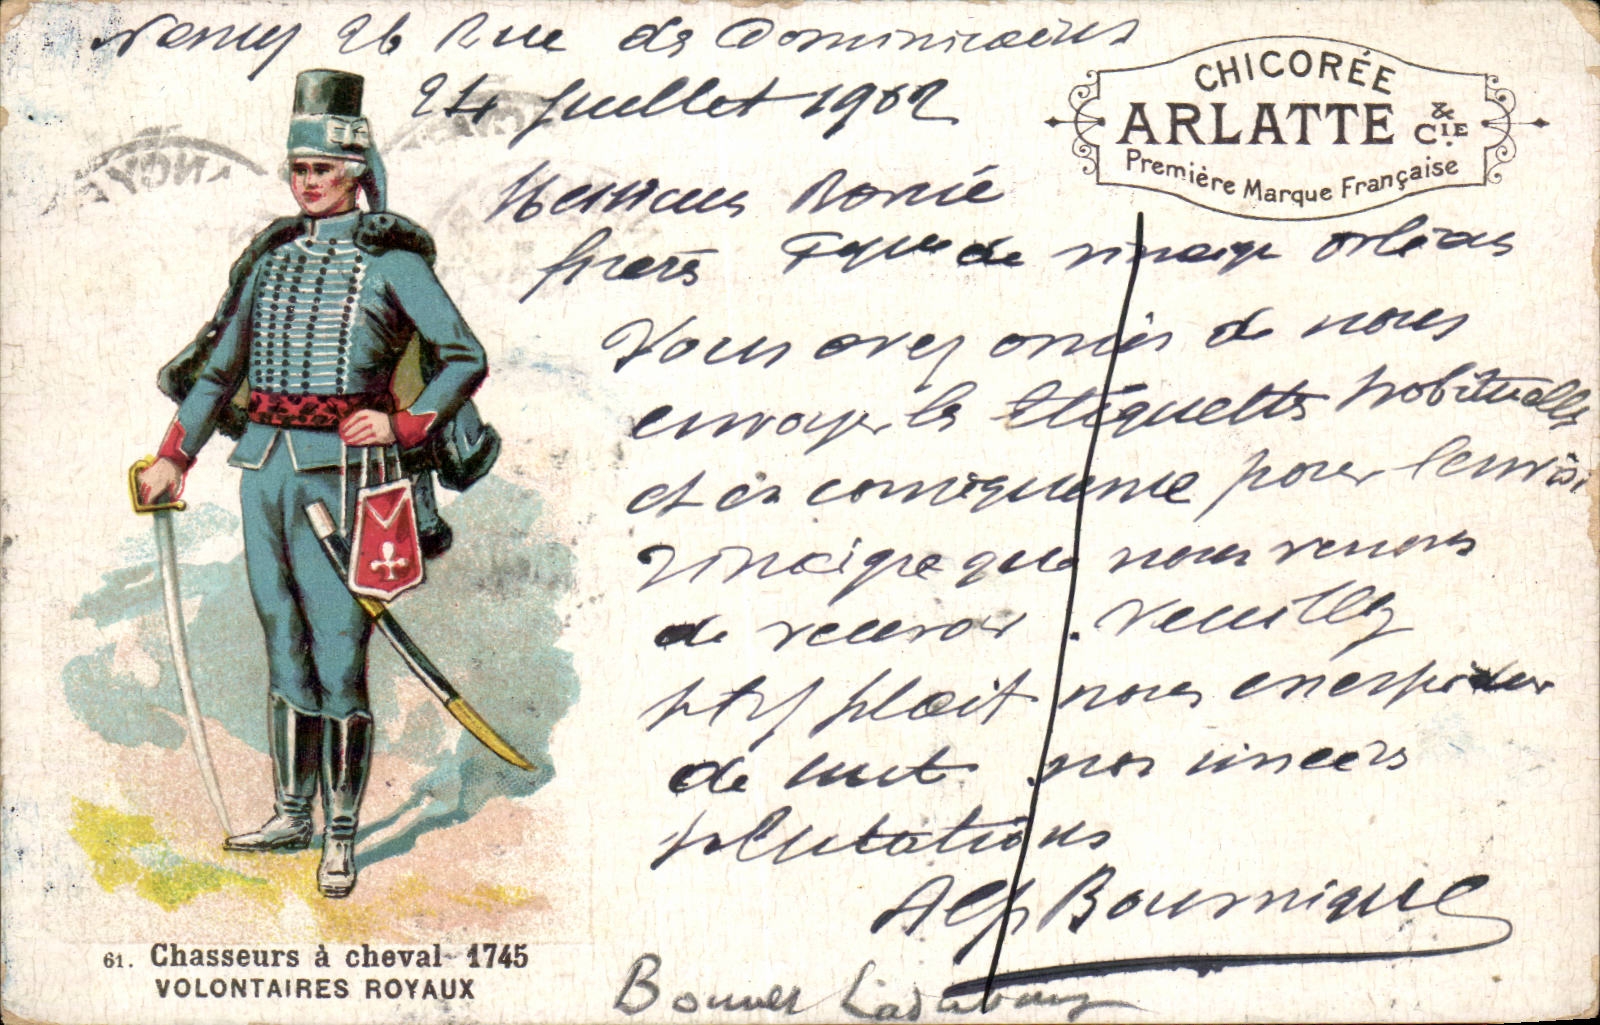 Nancy 26 Rue des Dominicains
24 juillet 1902
CHICORÉE
ARLATTE & CIE
Première Marque Française
Messieurs
frères de vinaigre orléans
Vous avez omis de nous
envoyer les étiquettes habituelles
et en conséquence pour l'envoi
vinaigre que nous venons
de recevoir. Veuillez
s'il plait nous
de suite nos sincères
salutations
Alf Bournique
61. Chasseurs à cheval - 1745
VOLONTAIRES ROYAUX